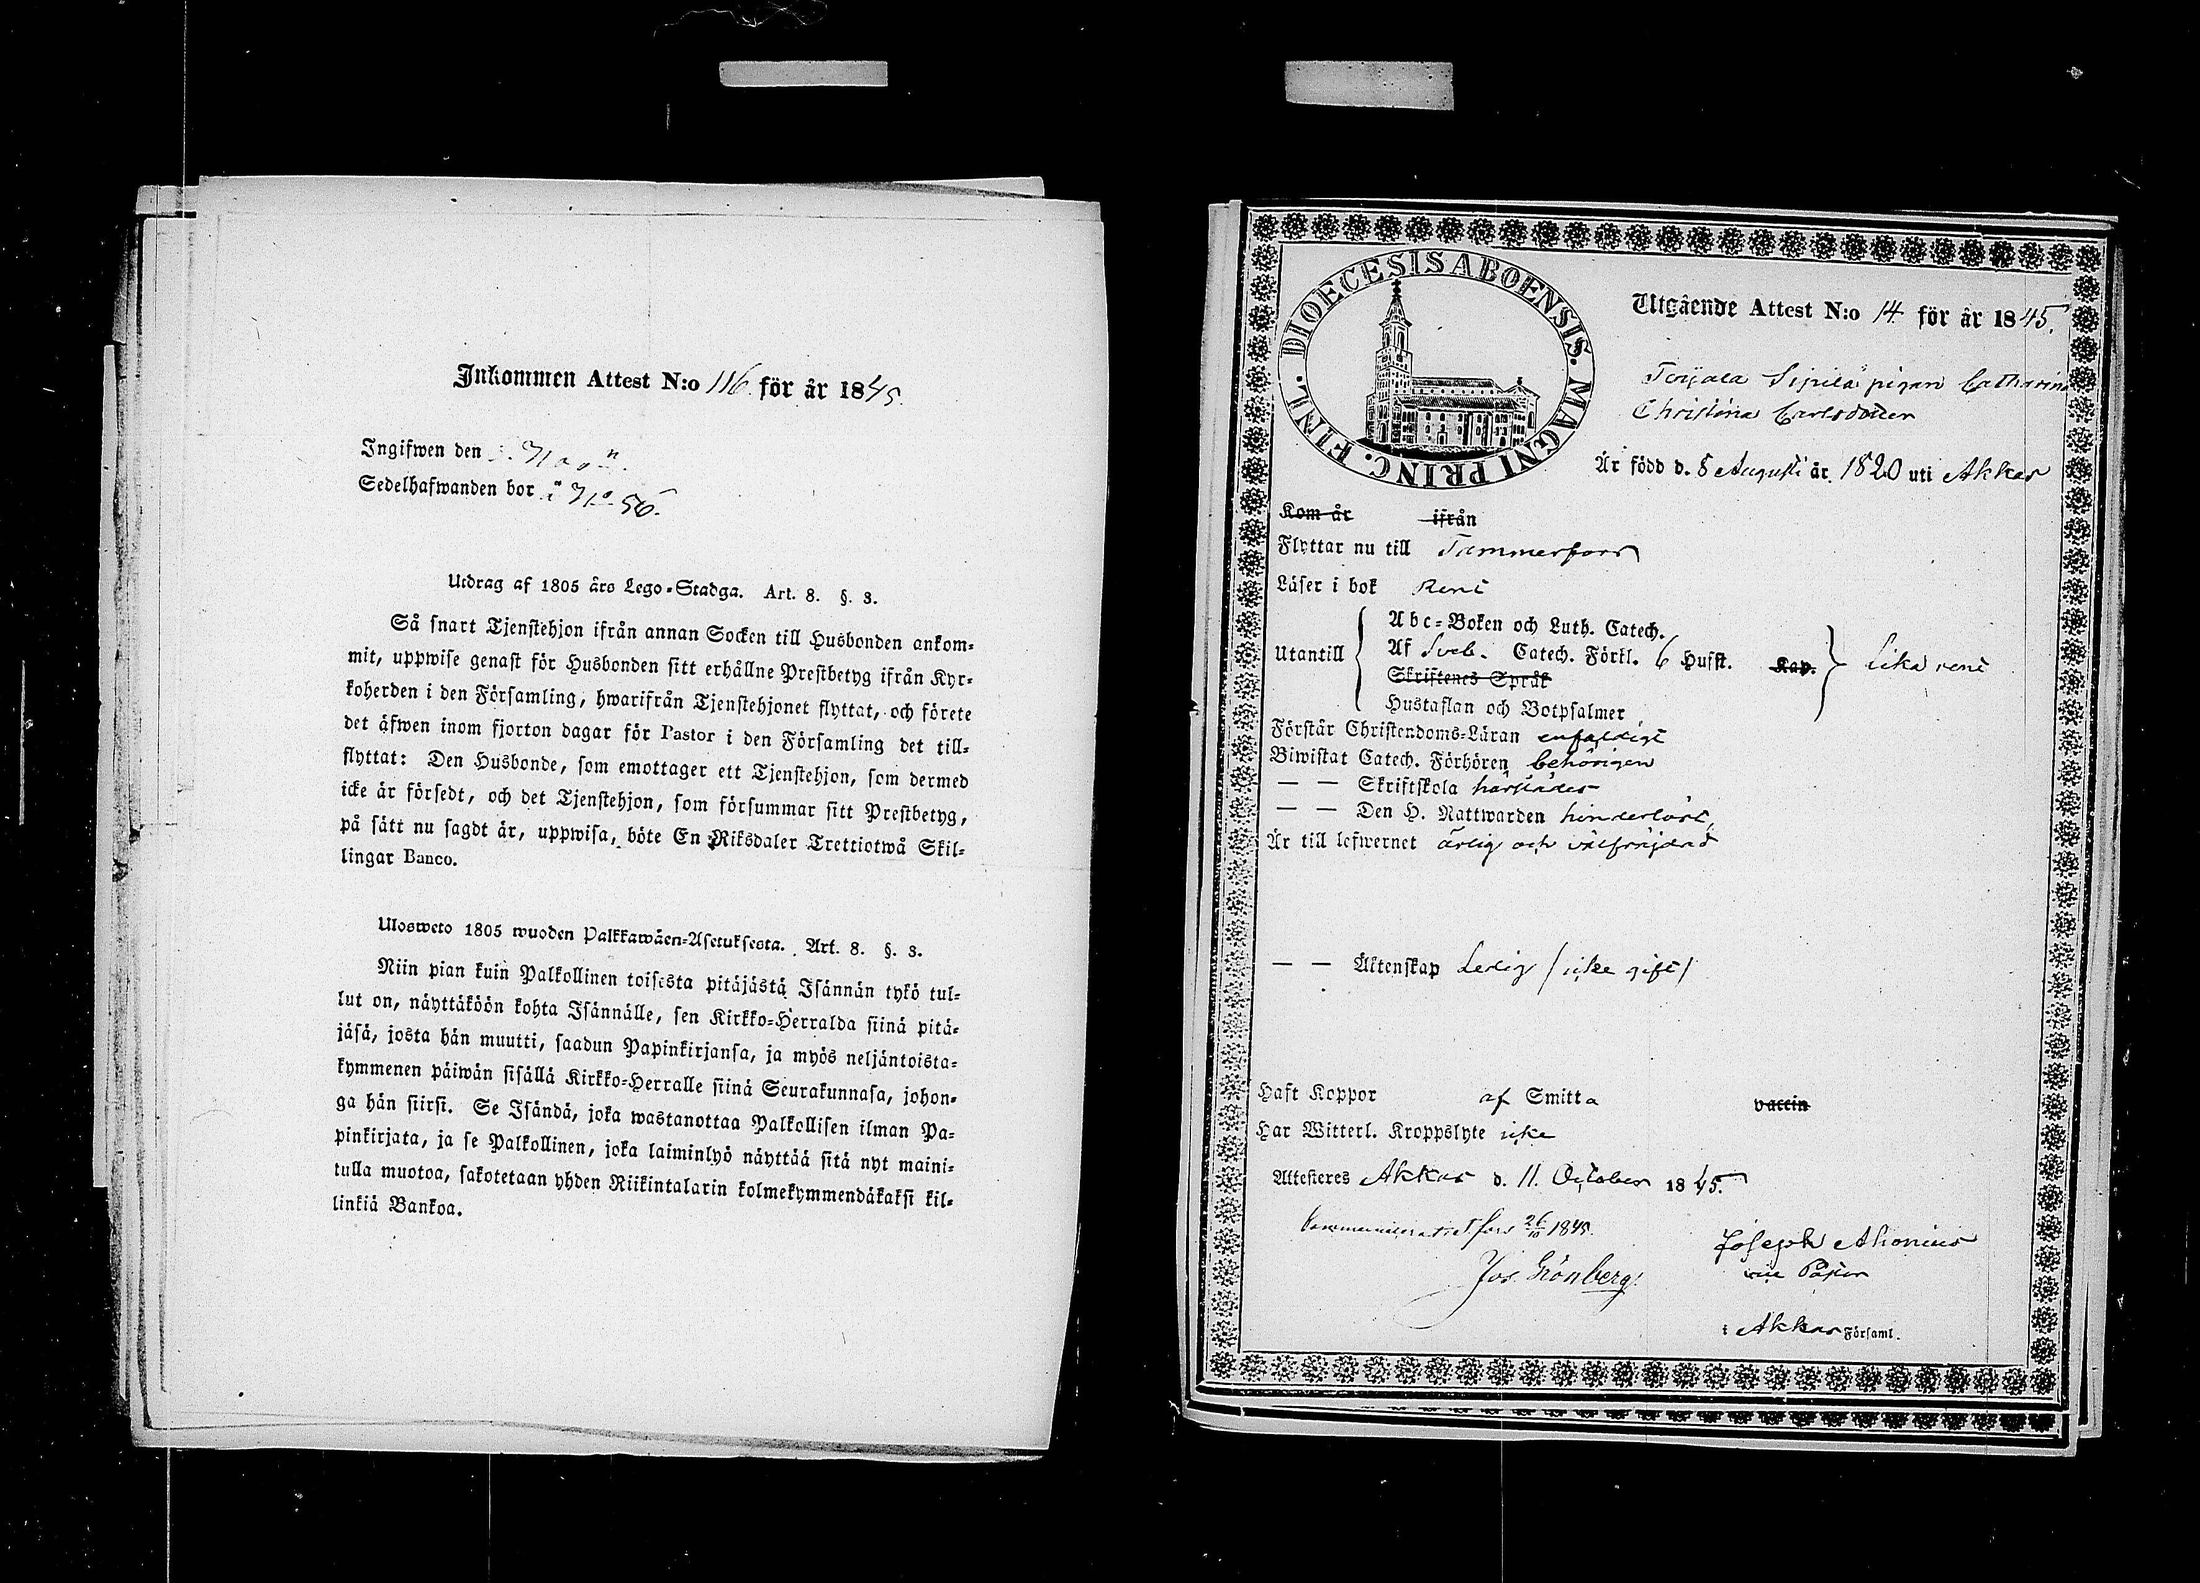 Inkommen Attest N:o 116 för år 1845.
Ingifwen den
Sedelhafwanden bor i N:o 56.
Utdrag af 1805 års Lego-Stadga. Art. 8. §. 3.
Så snart Tjenstehjon ifrån annan Socken till Husbonden ankom-
mit, uppwise genast för Husbonden sitt erhållne Prestbetyg ifrån Kyr-
koherden i den Församling, hwarifrån Tjenstehjonet flyttat, och förete
det äfwen inom fjorton dagar för Pastor i den Församling det till-
flyttat: Den Husbonde, som emottager ett Tjenstehjon, som dermed
icke är försedt, och det Tjenstehjon, som försummar sitt Prestbetyg,
på sätt nu sagdt är, uppwisa, böte En Riksdaler Trettiotwå Skil-
lingar Banco.
Ulosweto 1805 wuoden Palkkawäen-Asetuksesta. Art. 8. §. 3.
Niin pian kuin Palkollinen toisesta pitäjästä Isännän tykö tul-
lut on, näyttäköön kohta Isännälle, sen Kirkko-Herralda siinä pitä-
jäsä, josta hän muutti, saadun Papinkirjansa, ja myös neljäntoista-
kymmenen päiwän sisällä Kirkko-Herralle siinä Seurakunnasa, johon-
ga hän siirsi. Se Isändä, joka wastanottaa Palkollisen ilman Pa-
pinkirjata, ja se Palkollinen, joka laiminlyö näyttää sitä nyt maini-
tulla muotoa, sakotetaan yhden Riikintalarin kolmekymmendäkaksi kil-
linkiä Bankoa.
DIOECESIS ABOENSIS. MAGNI PRINC. FINL.
Utgående Attest N:o 14 för år 1845.
Sipilä pigan Catharina
Christina Carlsdotter
Är född d. 8 Augusti år 1820 uti Akkas
Kom år ifrån
Flyttar nu till Tammerfors
Läser i bok Rent
Abc-Boken och Luth. Catech.
Utantill Af Sveb. Catech. Förkl. 6 Hufst. Kap. Lika rent
Skriftenes Språk
Hustaflan och Botpsalmer
Förstår Christendoms-Läran enfaldigt
Biwistat Catech. Förhören behörigen
— — Skriftskola härstädes
— — Den H. Nattwarden hinderlöst,
Är till lefwernet ärlig och välfräjdad
— — Äktenskap Ledig / icke gift /
Haft Koppor af Smitta vaccin
Har Witterl. Kroppslyte icke
Attesteres Akkas d. 11. October 1845.
26/10 1845.
Joseph Ahonius
Jos. Grönberg.
vice Pastor
i Akkas Församl.